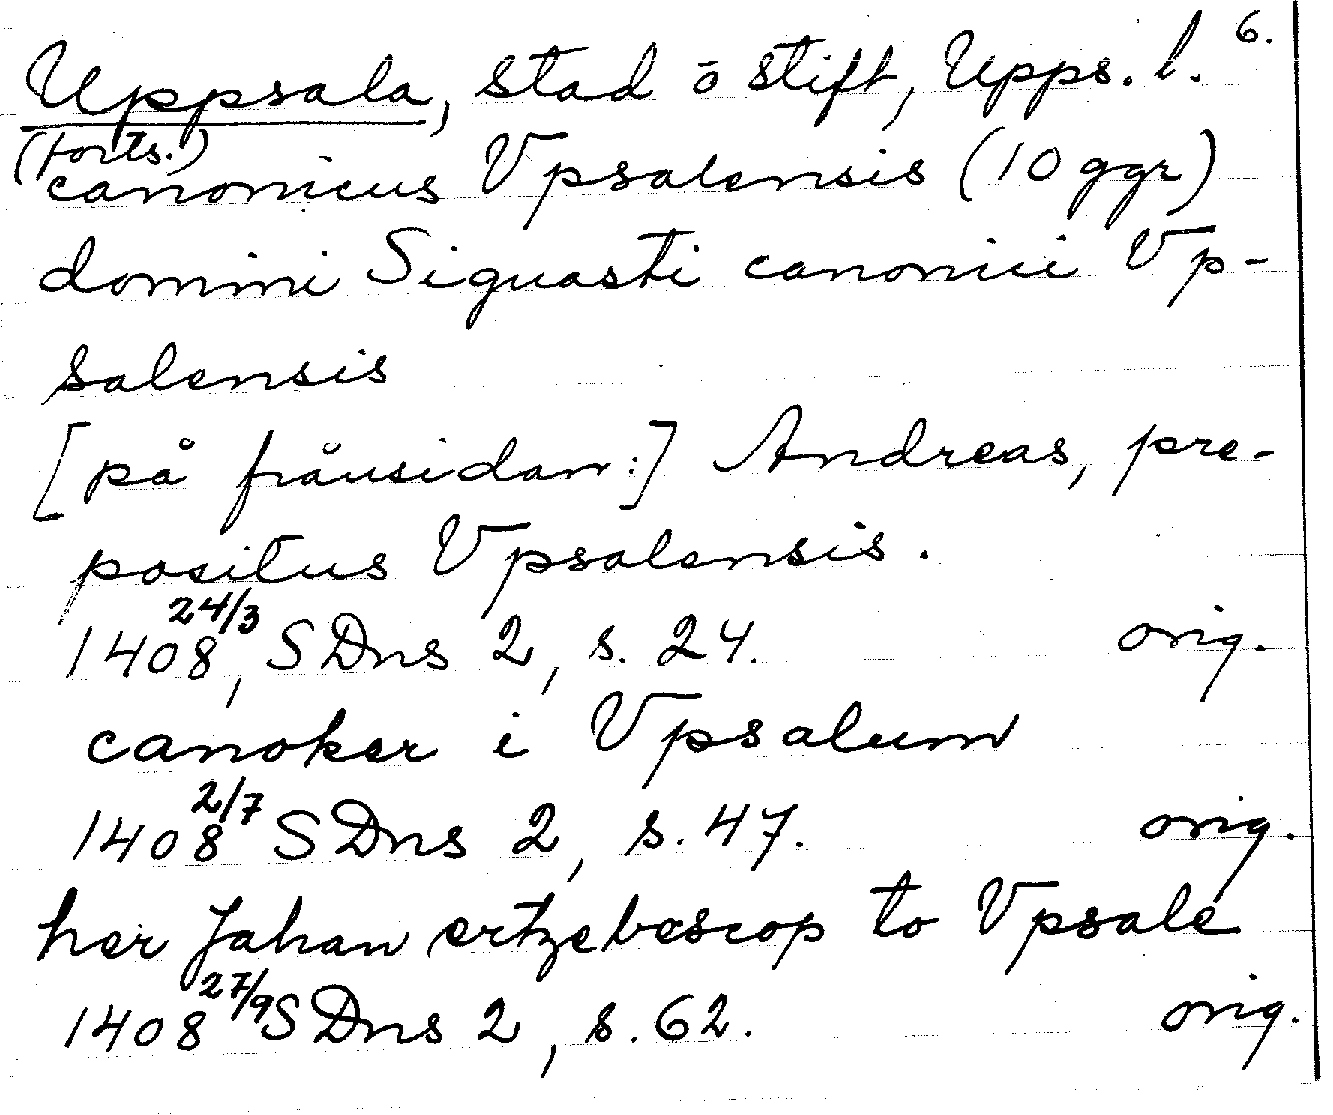 Uppsala, stad o stift, Upps. l. 6.
(forts.)
canonicus Vpsalensis (10 ggr)
domini Siguasti canonici Vp-
salensis
[på frånsidan:] Andreas, pre-
positus Vpsalensis.
1408 24/3, SDns 2, s. 24. orig.
canoker i Vpsalum
1408 2/7 SDns 2, s. 47. orig.
her Johan ertzebescop to Vpsale
1408 27/9 SDns 2, s. 62. orig.